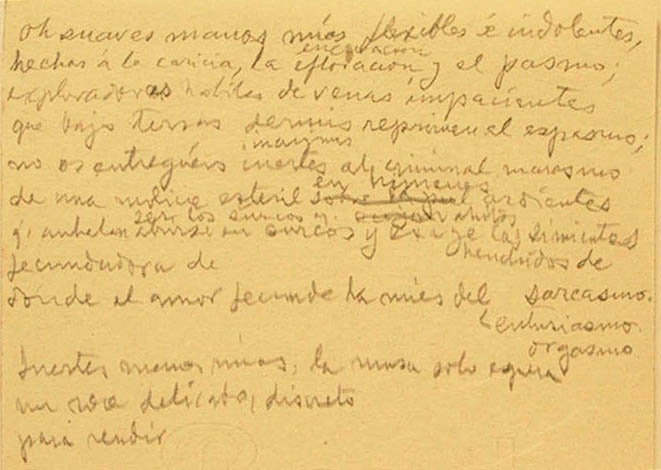 Oh suaves manos mías flexibles é indolentes,
encarnación
hechas á la caricia, la efloración y el pasmo;
exploradoras hábiles de venas impacientes
que bajo tersas dermis reprimen el espasmo;
no os entreguéis inertes al criminal marasmo
en himenes
de una molicie estéril sobre la piel ardientes
ser los surcos y
q. anhelan abrirse en surcos y exige las simientes
fecundadora de hendidos de
donde el amor fecunde la mies del sarcasmo.
entusiasmo.
orgasmo
Inertes manos mías, la musa solo espera
un roce delicado, discreto
para rendir